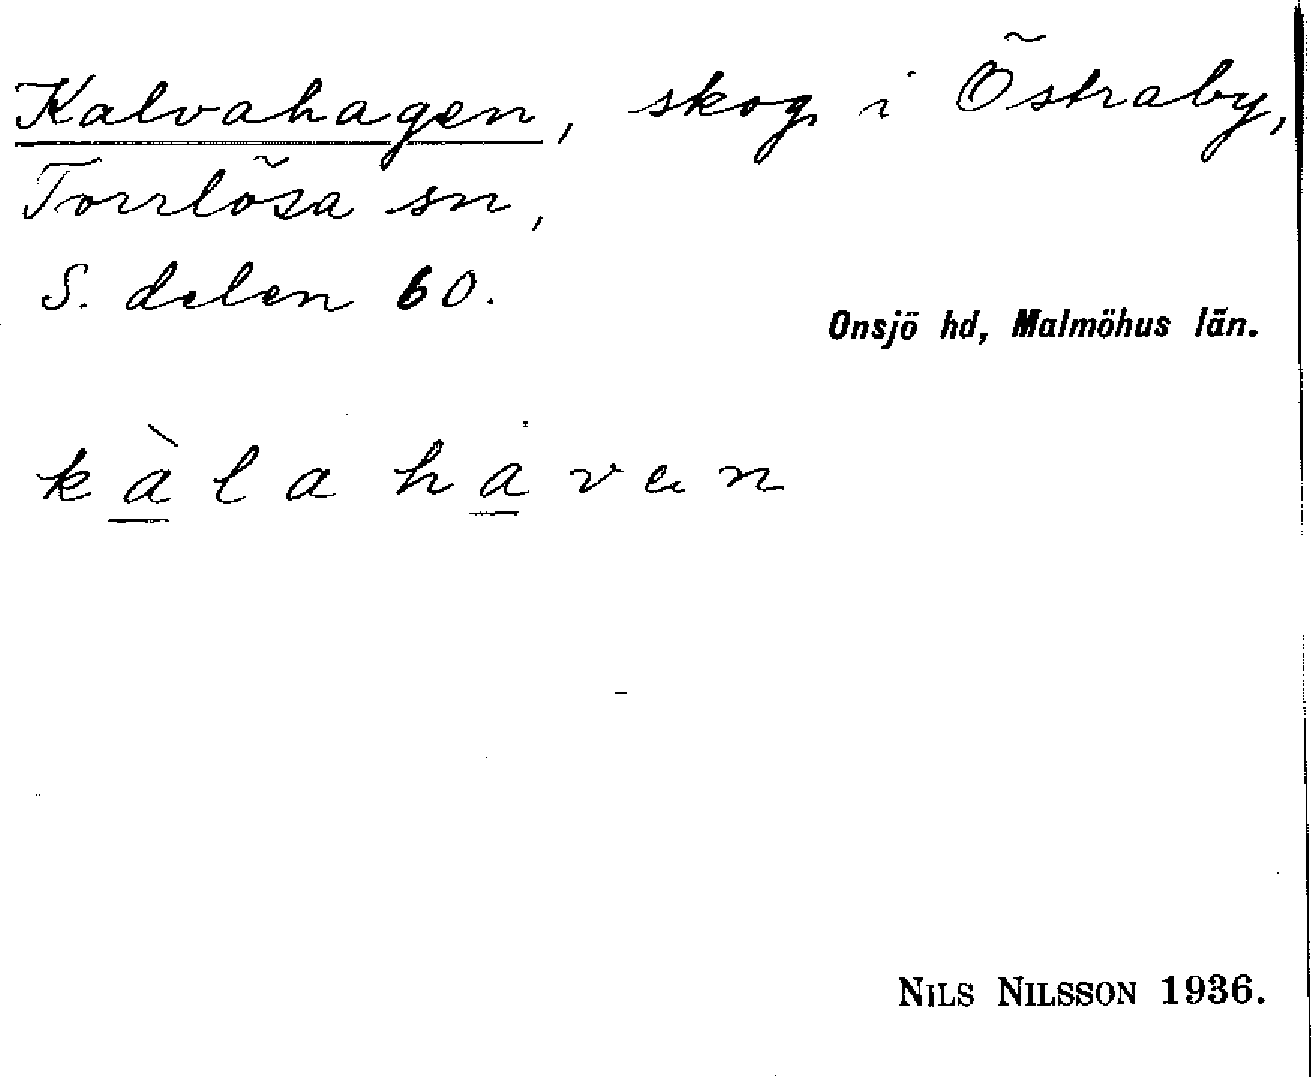 Kalvahagen, skog i Östraby,
Torrlösa sn,
S. delen 60.
Onsjö hd, Malmöhus län.
kàlahavan
NILS NILSSON 1936.